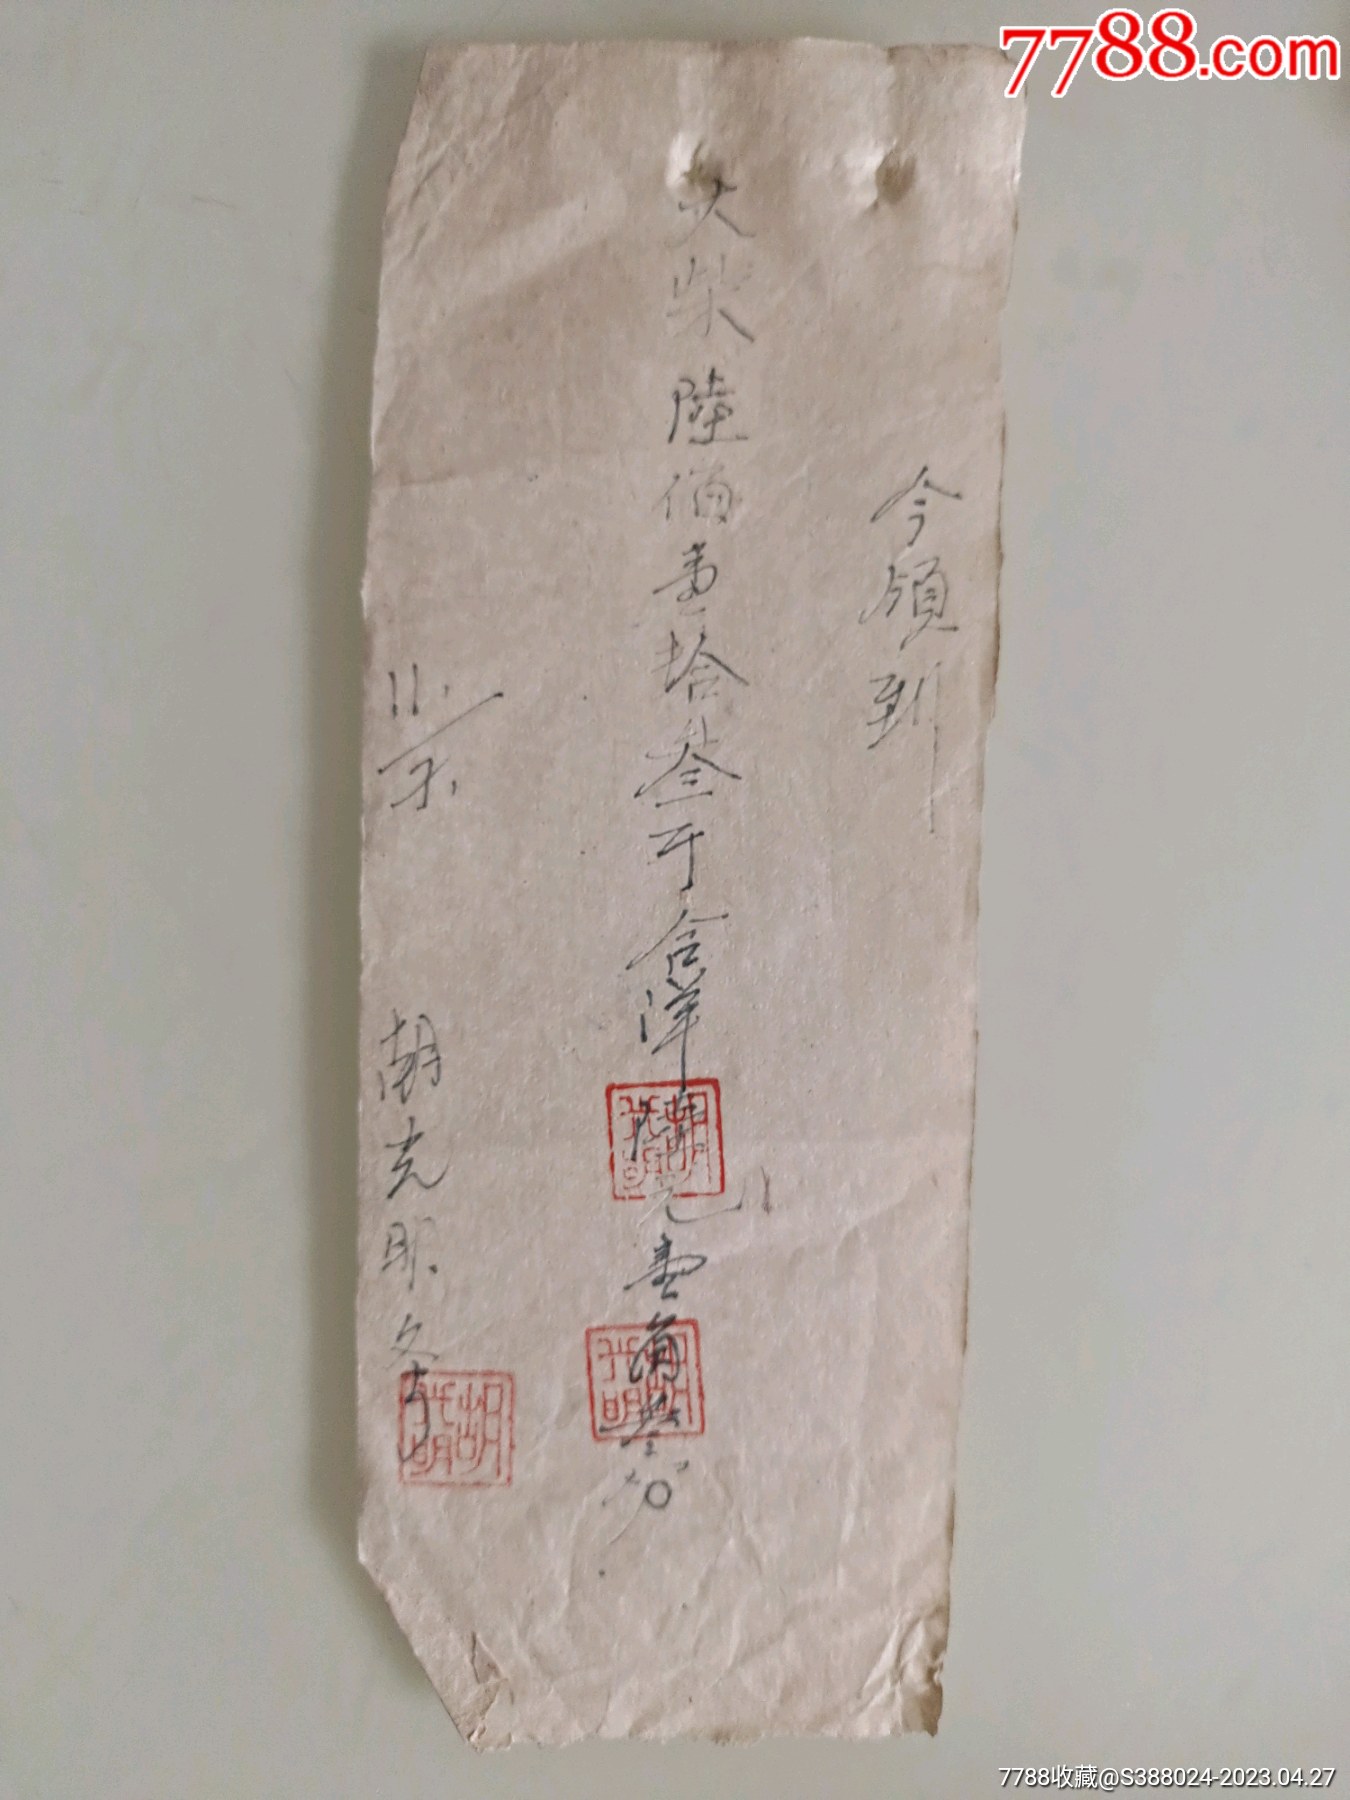 7788.com
今領到
大柴陸佰壹拾叁斤合洋陸元壹角叁分
11.
胡克明
胡克明
胡克明
胡克明
7788收藏@S388024-2023.04.27